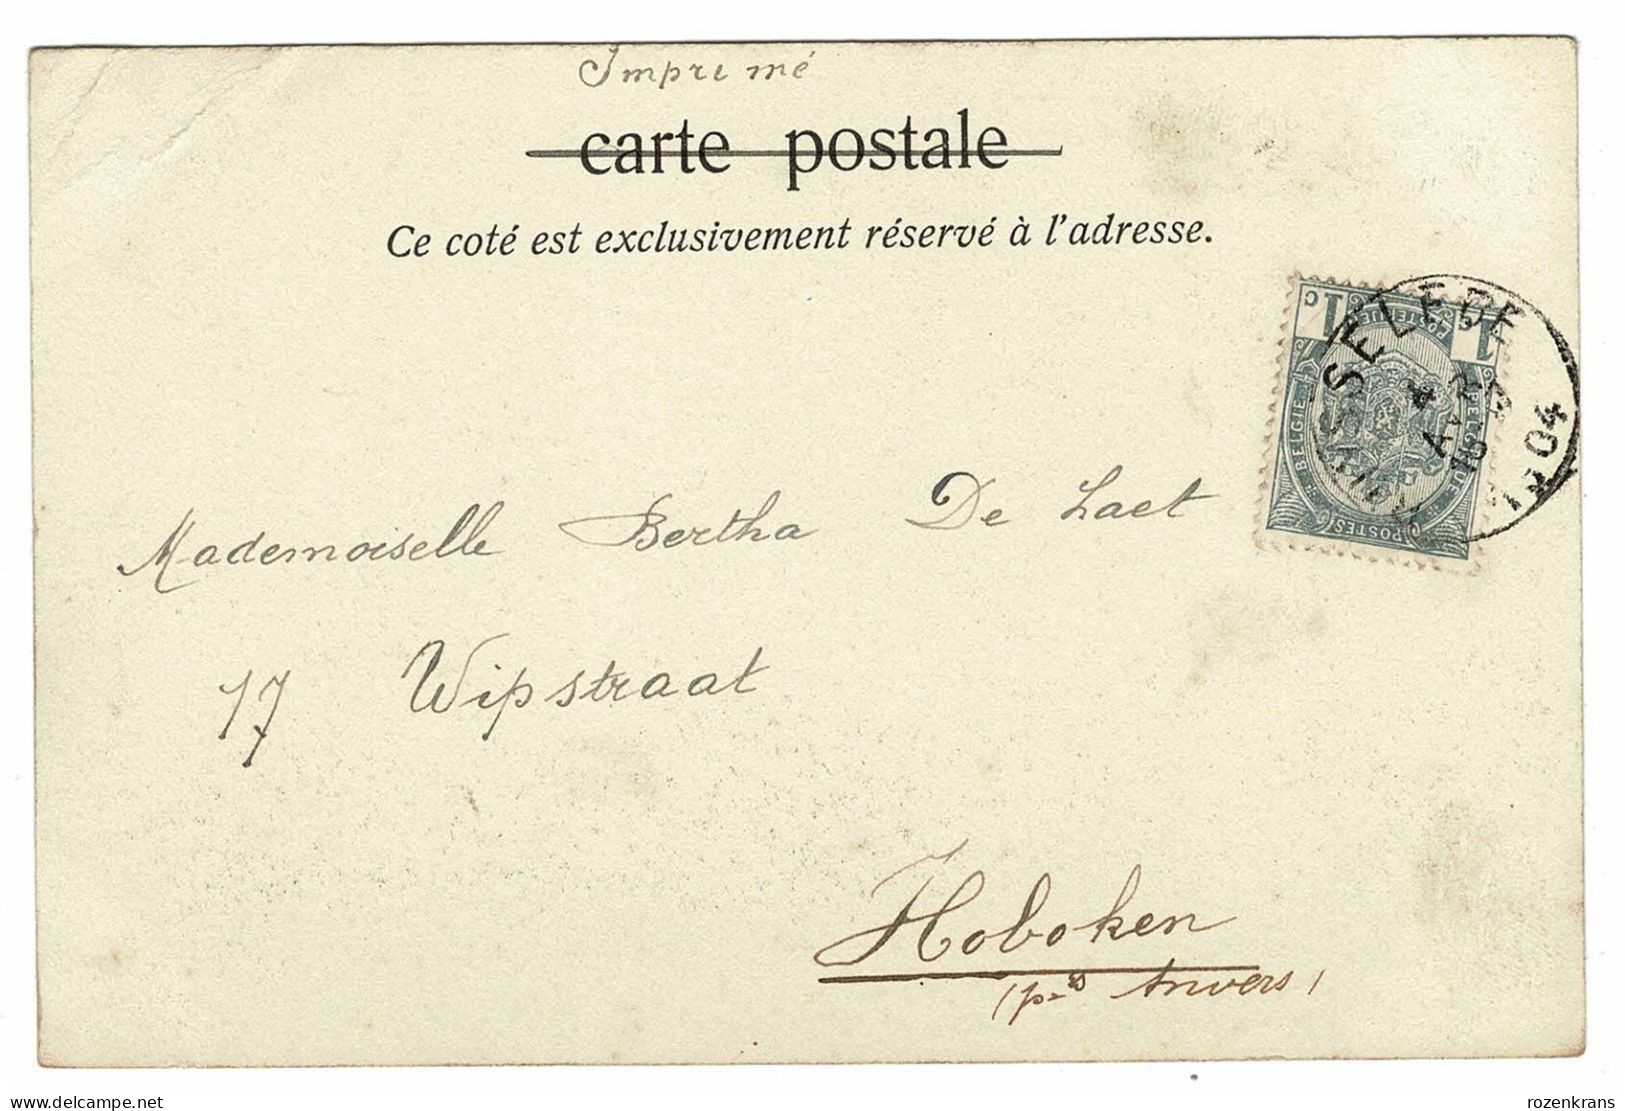 Imprimé
carte postale
Ce coté est exclusivement réservé à l'adresse.
1 c 1 c
POSTERIJEN
BELGIE BELGIQUE
POSTES POSTES
4 AVR
04
Mademoiselle Bertha De Laet
17 Wipstraat
Hoboken
(p-s Anvers)
delcampe.net
rozenkrans